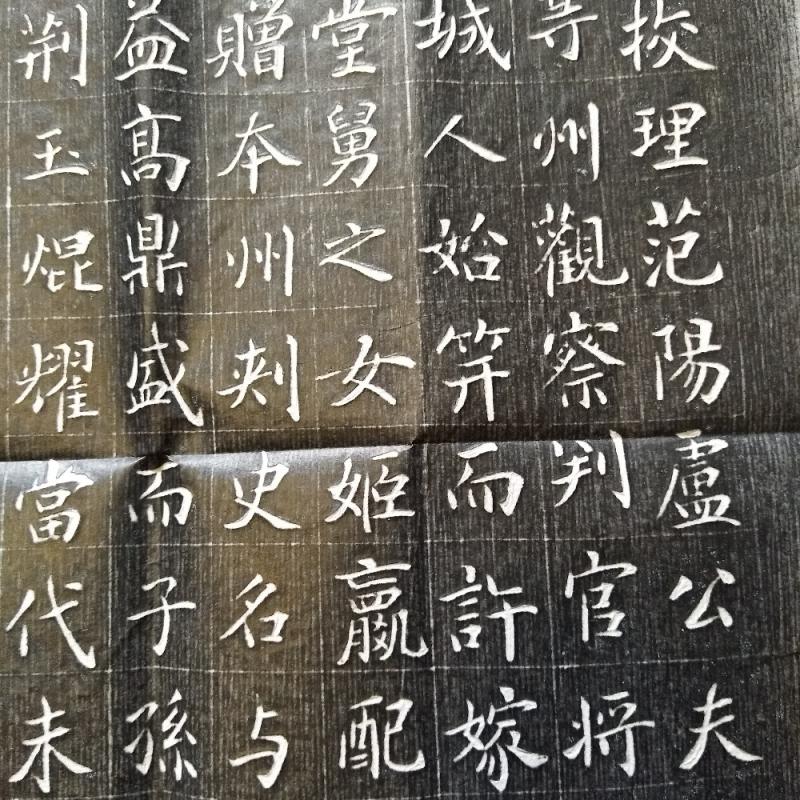 挍理范陽盧公夫
等州觀察判官將
城人始笄而許嫁
堂舅之女姬嬴配
贈本州刾史名与
益高鼎盛而子孫
荆玉焜耀當代未